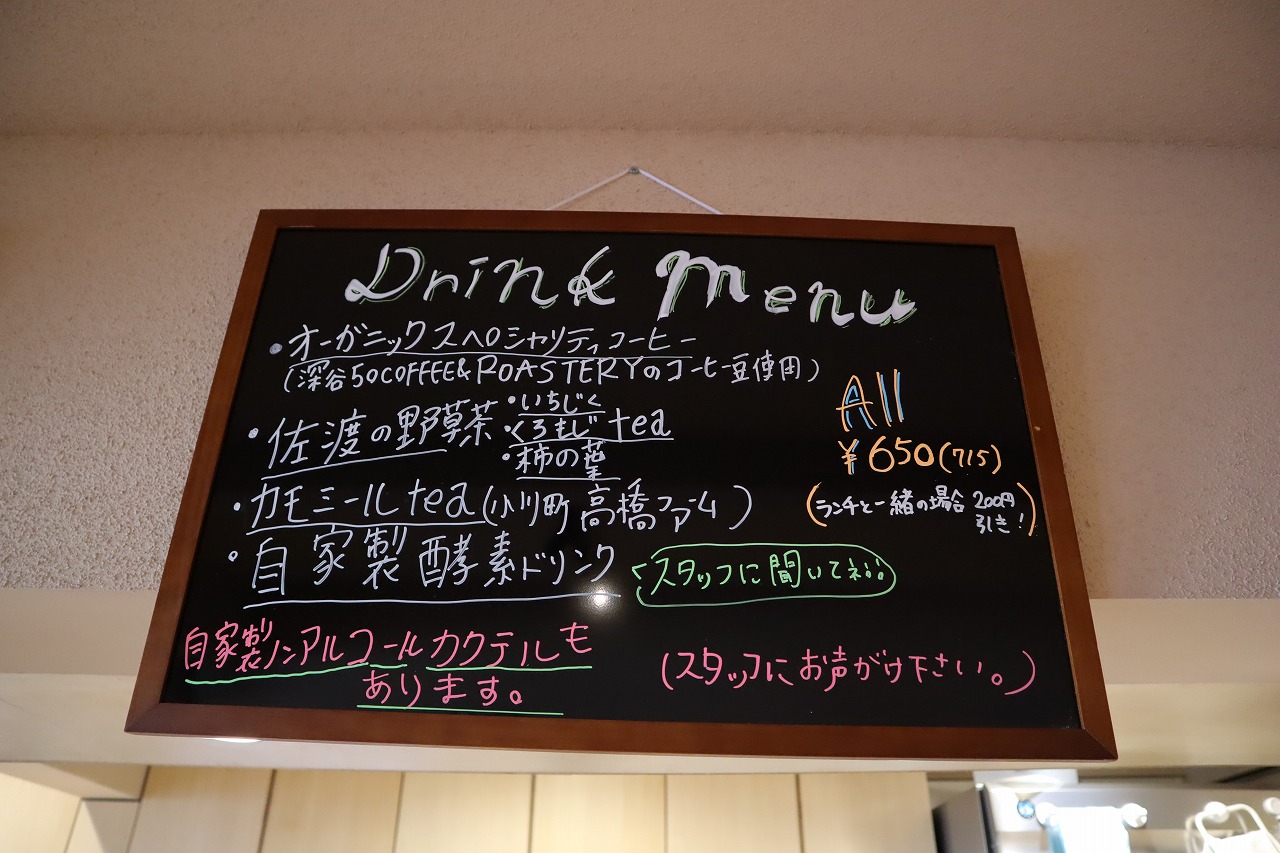 Drink Menu
・オーガニックスペシャリティコーヒー
(深谷50COFFEE&ROASTERYのコーヒー豆使用)
・佐渡の野草茶
・いちじく
・くろもじ tea
・柿の葉
・カモミールtea(小川町 高橋ファーム)
・自家製酵素ドリンク
スタッフに聞いてネ
All
¥650(715)
(ランチと一緒の場合 200円
引き!)
自家製ノンアルコールカクテルも
あります。
(スタッフにお声がけ下さい。)